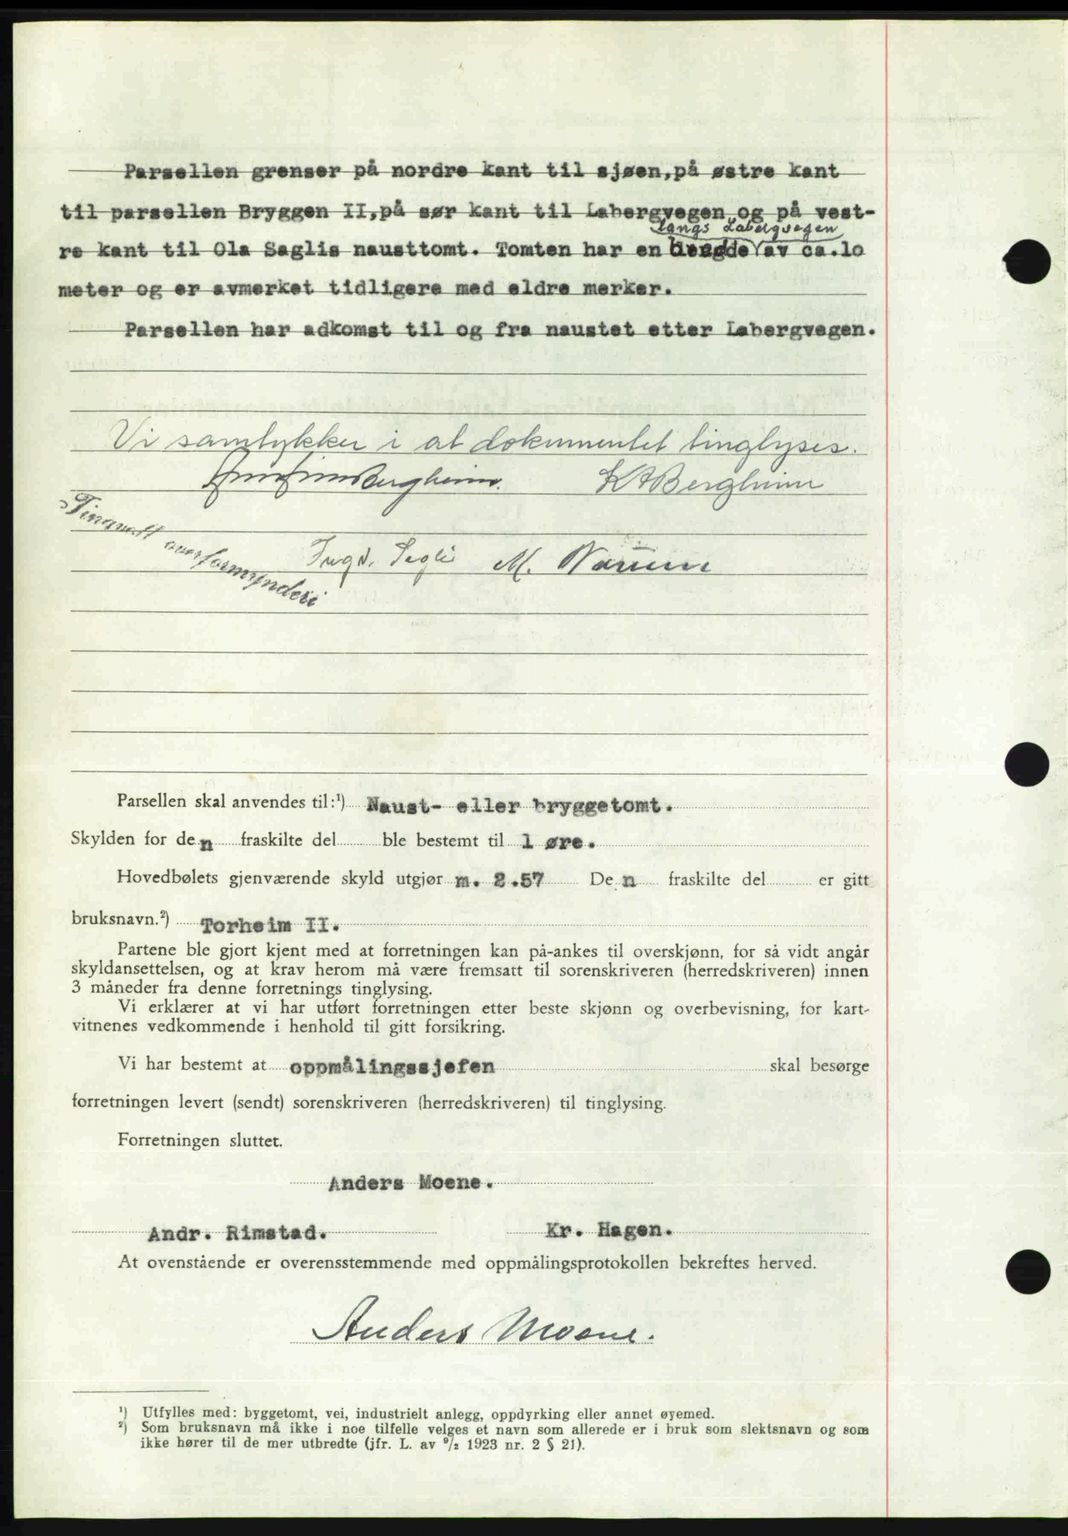 Parsellen grenser på nordre kant til sjøen,på østre kant
til parsellen Bryggen II,på sør kant til Labergvegen og på vest-
langs Labergvegen
re kant til Ola Saglis nausttomt. Tomten har en bredde av ca.lo
meter og er avmerket tidligere med eldre merker.
Parsellen har adkomst til og fra naustet etter Labergvegen.
Vi samtykker i at dokumentet tinglyses.
Bergheim. KABergheim
overformynderi
Ingv. Segli M. Narum
Parsellen skal anvendes til:¹) Naust- eller bryggetomt.
Skylden for den fraskilte del ble bestemt til l øre.
Hovedbølets gjenværende skyld utgjør m. 2.57 Den fraskilte del er gitt
bruksnavn.²) Torheim II.
Partene ble gjort kjent med at forretningen kan på-ankes til overskjønn, for så vidt angår
skyldansettelsen, og at krav herom må være fremsatt til sorenskriveren (herredskriveren) innen
3 måneder fra denne forretnings tinglysing.
Vi erklærer at vi har utført forretningen etter beste skjønn og overbevisning, for kart-
vitnenes vedkommende i henhold til gitt forsikring.
Vi har bestemt at oppmålingssjefen skal besørge
forretningen levert (sendt) sorenskriveren (herredskriveren) til tinglysing.
Forretningen sluttet.
Anders Moene.
Andr. Rimstad. Kr. Hagen.
At ovenstående er overensstemmende med oppmålingsprotokollen bekreftes herved.
Anders Moene.
¹) Utfylles med: byggetomt, vei, industrielt anlegg, oppdyrking eller annet øyemed.
²) Som bruksnavn må ikke i noe tilfelle velges et navn som allerede er i bruk som slektsnavn og som
ikke hører til de mer utbredte (jfr. L. av ⁹/₂ 1923 nr. 2 § 21).